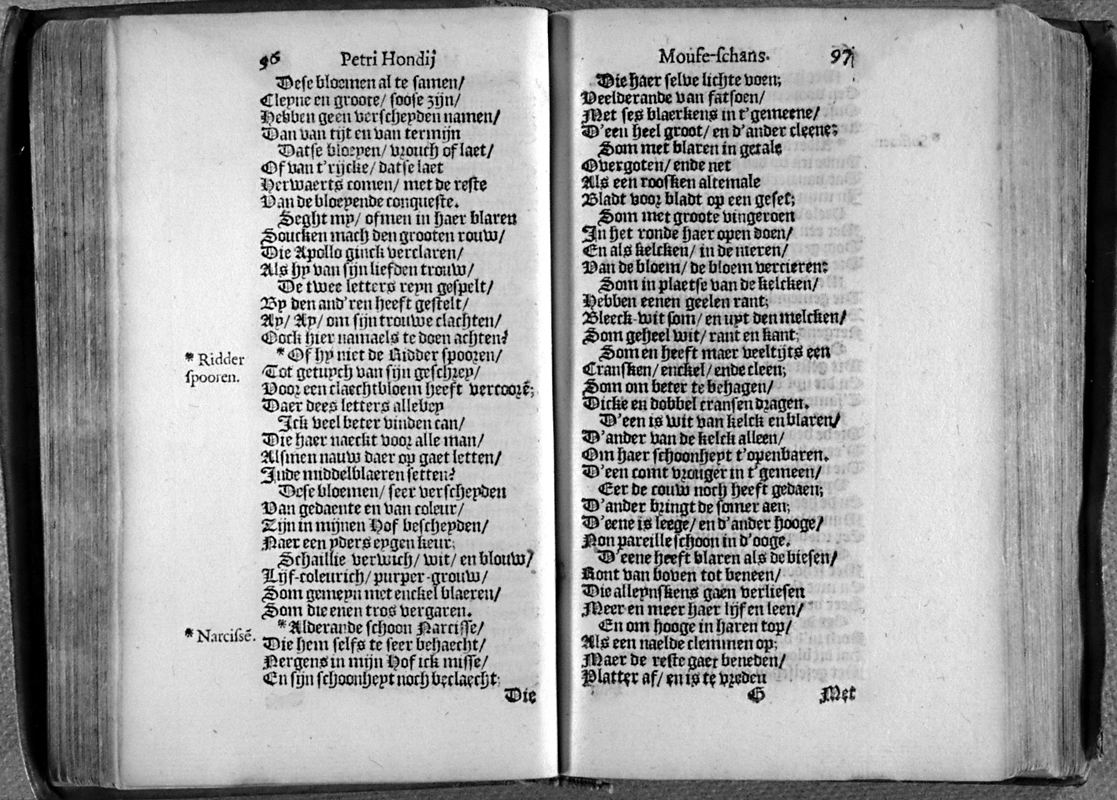 96 Petri Hondij
Dese bloemen al te samen/
Cleyne en groote/ soose zijn/
Hebben geen verscheyden namen/
Dan van tijt en van termijn
Datse bloeyen/ vrouch of laet/
Of van t'rijcke/ datse laet
Herwaerts comen/ met de reste
Van de bloeyende conqueste.
Seght my/ ofmen in haer blaren
Soucken mach den grooten rouw/
Die Apollo ginck verclaren/
Als hy van sijn liefden trouw/
De twee letters reyn gespelt/
By den and'ren heeft gestelt/
Ay/ Ay/ om sijn trouwe clachten/
Oock hier namaels te doen achten?
* Ridder
spooren.
*Of hy niet de Ridder spooren/
Tot getuych van sijn geschrey/
Voor een claechtbloem heeft vercoorē;
Daer dees letters allebey
Ick veel beter vinden can/
Die haer naeckt voor alle man/
Alsmen nauw daer op gaet letten/
Inde middelblaeren setten?
Dese bloemen/ seer verscheyden
Van gedaente en van coleur/
Zijn in mijnen Hof bescheyden/
Naer een yders eygen keur;
Schaillie verwich/ wit/ en blouw/
Lijf-coleurich/ purper-grouw/
Som gemeyn met enckel blaeren/
Som die enen tros vergaren.
* Narcissē.
*Alderande schoon Narcisse/
Die hem selfs te seer behaecht/
Nergens in mijn Hof ick misse/
En sijn schoonheyt noch beclaecht;
Die
Moufe-schans. 97
Die haer selve lichte voen;
Veelderande van fatsoen/
Met ses blaerkens in t'gemeene/
D'een heel groot/ en d'ander cleene;
Som met blaren in getale
Overgoten/ ende net
Als een roosken altemale
Bladt voor bladt op een geset;
Som met groote vingeroen
In het ronde haer open doen/
En als kelcken/ in de meren/
Van de bloem/ de bloem vercieren:
Som in plaetse van de kelcken/
Hebben eenen geelen rant;
Bleeck-wit som/ en uyt den melcken/
Som geheel wit/ rant en kant;
Som en heeft maer veeltijts een
Cransken/ enckel/ ende cleen;
Som om beter te behagen/
Dicke en dobbel cransen dragen.
D'een is wit van kelck en blaren/
D'ander van de kelck alleen/
Om haer schoonheyt t'openbaren.
D'een comt vrouger in t'gemeen/
Eer de couw noch heeft gedaen;
D'ander bringt de somer aen;
D'eene is leege/ en d'ander hooge/
Non pareille schoon in d'ooge.
D'eene heeft blaren als de biesen/
Ront van boven tot beneen/
Die alleynskens gaen verliesen
Meer en meer haer lijf en leen/
En om hooge in haren top/
Als een naelde clemmen op;
Maer de reste gaet beneden/
Platter af/ en is te vreden
G Met